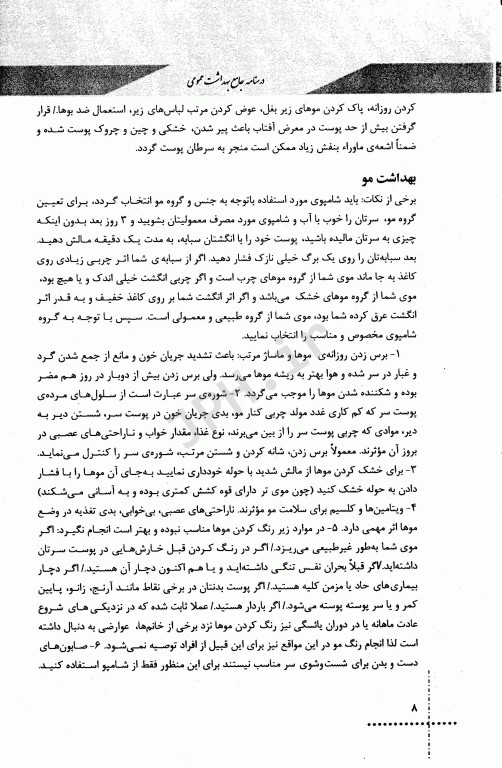 درسنامه جامع بهداشت عمومی
کردن روزانه، پاک کردن موهای زیر بغل، عوض کردن مرتب لباس‌های زیر، استعمال ضد بوها./ قرار
گرفتن بیش از حد پوست در معرض آفتاب باعث پیر شدن، خشکی و چین و چروک پوست شده و
ضمناً اشعه‌ی ماوراء بنفش زیاد ممکن است منجر به سرطان پوست گردد.
بهداشت مو
برخی از نکات: باید شامپوی مورد استفاده باتوجه به جنس و گروه مو انتخاب گردد، برای تعیین
گروه مو، سرتان را خوب با آب و شامپوی مورد مصرف معمولیتان بشویید و ۳ روز بعد بدون اینکه
چیزی به سرتان مالیده باشید، پوست خود را با انگشتان سبابه، به مدت یک دقیقه مالش دهید.
بعد سبابه‌تان را روی یک برگ خیلی نازک فشار دهید. اگر از سبابه‌ی شما اثر چربی زیادی روی
کاغذ به جا ماند موی شما از گروه موهای چرب است و اگر چربی انگشت خیلی اندک و یا هیچ بود،
موی شما از گروه موهای خشک می‌باشد و اگر اثر انگشت شما بر روی کاغذ خفیف و به قدر اثر
انگشت عرق کرده شما بود، موی شما از گروه طبیعی و معمولی است. سپس با توجه به گروه
شامپوی مخصوص و مناسب را انتخاب نمایید.
۱- برس زدن روزانه‌ی موها و ماساژ مرتب: باعث تشدید جریان خون و مانع از جمع شدن گرد
و غبار در سر شده و هوا بهتر به ریشه موها می‌رسد. ولی برس زدن بیش از دوبار در روز هم مضر
بوده و شکننده شدن موها را موجب می‌گردد. ۲- شوره‌ی سر عبارت است از سلول‌های مرده‌ی
پوست سر که کم کاری غدد مولد چربی کنار مو، بدی جریان خون در پوست سر، شستن دیر به
دیر، موادی که چربی پوست سر را از بین می‌برند، نوع غذا، مقدار خواب و ناراحتی‌های عصبی در
بروز آن مؤثرند. معمولاً برس زدن، شانه کردن و شستن مرتب، شوره‌ی سر را کنترل می‌نماید.
۳- برای خشک کردن موها از مالش شدید با حوله خودداری نمایید به‌جای آن موها را با فشار
دادن به حوله خشک کنید (چون موی تر دارای قوه کشش کمتری بوده و به آسانی می‌شکند)
۴- ویتامین‌ها و کلسیم برای سلامت مو مؤثرند. ناراحتی‌های عصبی، بی‌خوابی، بدی تغذیه در وضع
موها اثر مهمی دارد. ۵- در موارد زیر رنگ کردن موها مناسب نبوده و بهتر است انجام نگیرد: اگر
موی شما به‌طور غیرطبیعی می‌ریزد./ اگر در رنگ کردن قبل خارش‌هایی در پوست سرتان
داشته‌اید./اگر قبلاً بحران نفس تنگی داشته‌اید و یا هم اکنون دچار آن هستید./ اگر دچار
بیماری‌های حاد یا مزمن کلیه هستید./ اگر پوست بدنتان در برخی نقاط مانند آرنج، زانو، پایین
کمر و یا سر پوسته پوسته می‌شود./ اگر باردار هستید./ عملا ثابت شده که در نزدیکی های شروع
عادت ماهانه یا در دوران یائسگی نیز رنگ کردن موها نزد برخی از خانم‌ها، عوارضی به دنبال داشته
است لذا انجام رنگ مو در این مواقع نیز برای این قبیل از افراد توصیه نمی‌شود. ۶- صابون‌های
دست و بدن برای شست‌وشوی سر مناسب نیستند برای این منظور فقط از شامپو استفاده کنید.
۸